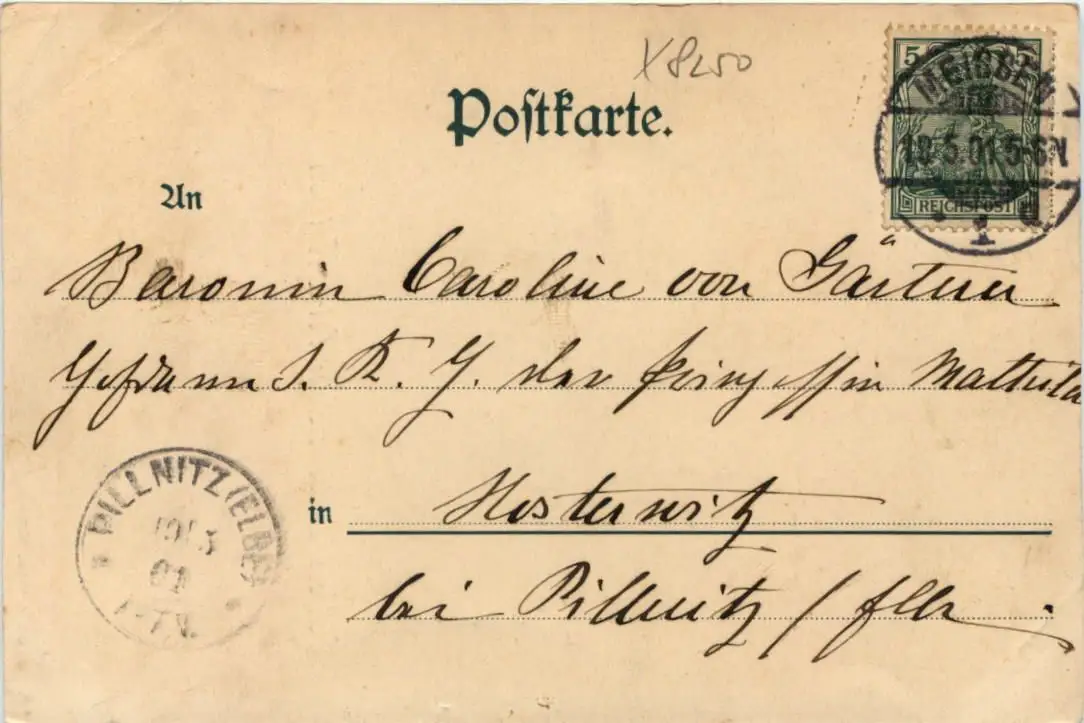 X8250
Postkarte.
5 5
MEISSEN
18.5.01 5-6N
1
REICHSPOST
An
Baronin Caroline von Gärtner
I. K. H. der Prinzessin Mathilde
PILLNITZ (ELBE)
19 5
01
in
Hosterwitz
bei Pillnitz / Elbe